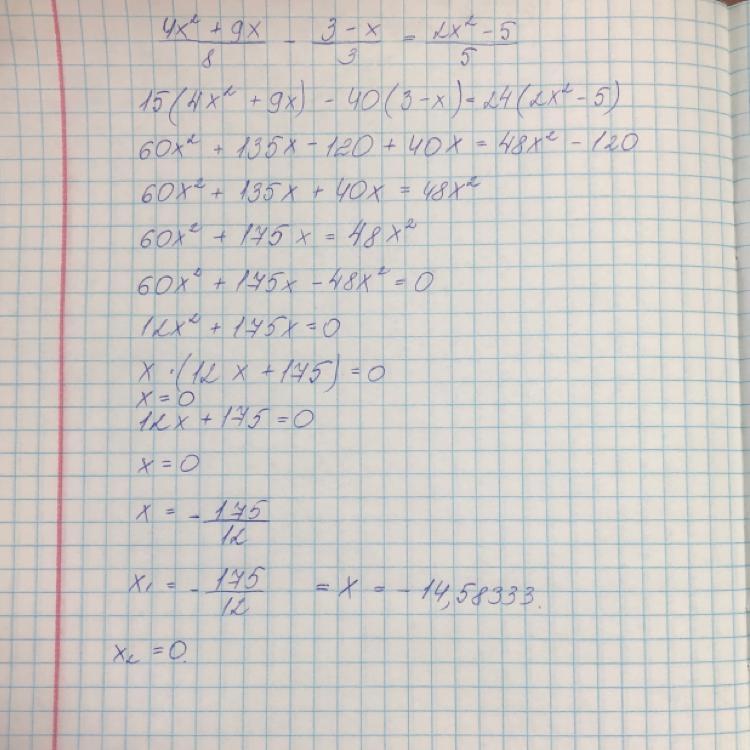 (4x² + 9x)/8 - (3 - x)/3 = (2x² - 5)/5
15(4x² + 9x) - 40(3 - x) = 24(2x² - 5)
60x² + 135x - 120 + 40x = 48x² - 120
60x² + 135x + 40x = 48x²
60x² + 175x = 48x²
60x² + 175x - 48x² = 0
12x² + 175x = 0
x · (12x + 175) = 0
x = 0
12x + 175 = 0
x = 0
x = - 175/12
x₁ = - 175/12 = x = - 14,58333.
x₂ = 0.